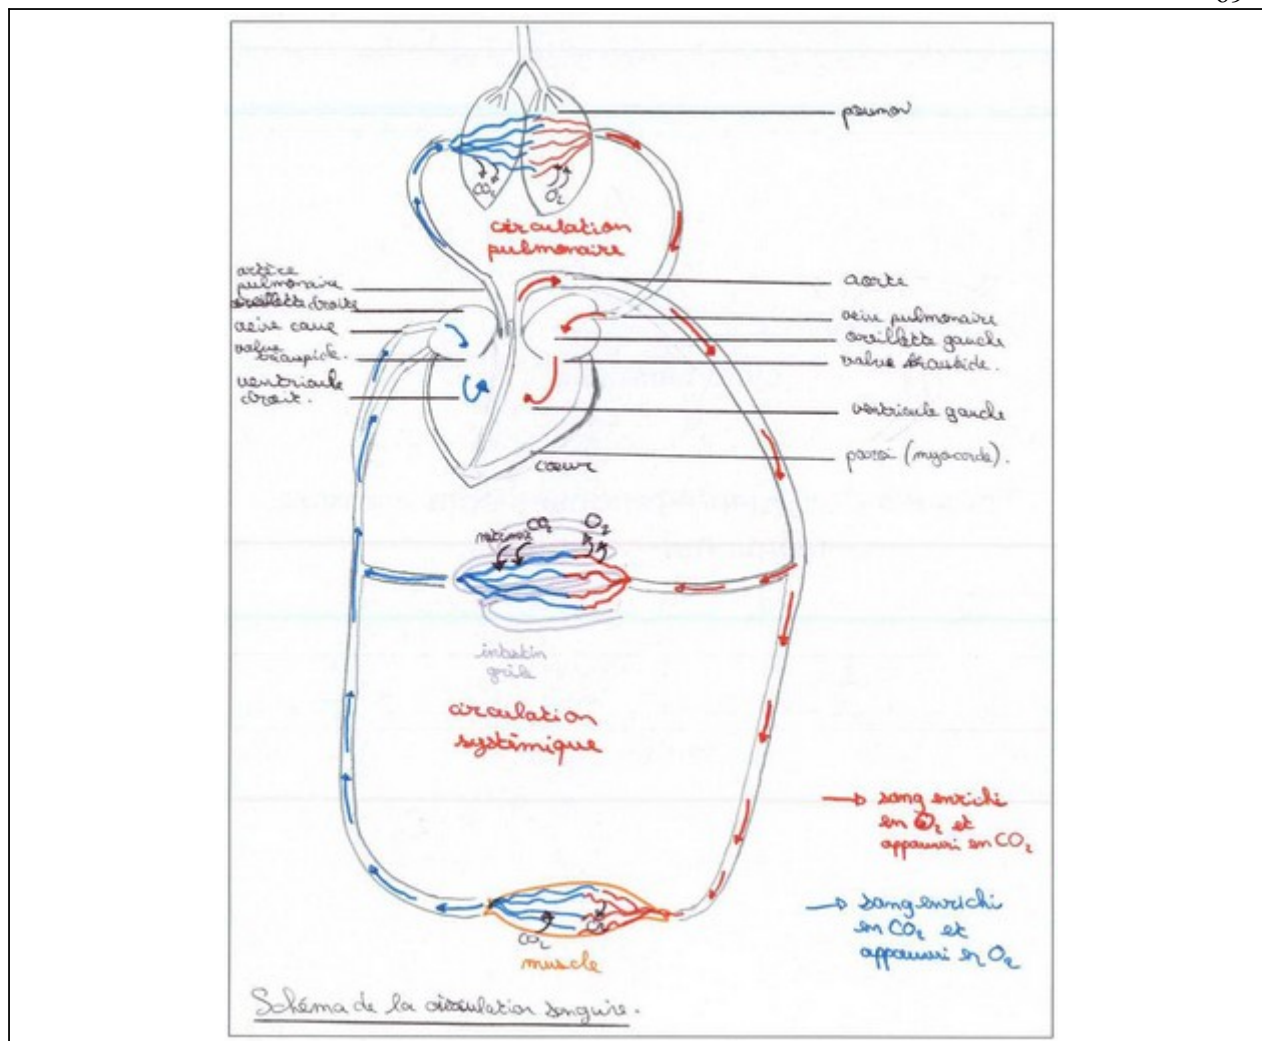 poumon
CO₂
O₂
circulation
pulmonaire
artère
pulmonaire
droite
veine cave
valve
ventricule
droit.
aorte
veine pulmonaire
oreillette gauche
valve
ventricule gauche
paroi (myocarde).
cœur
CO₂
O₂
intestin
grêle
circulation
systémique
sang enrichi
en O₂ et
appauvri en CO₂
sang enrichi
en CO₂ et
appauvri en O₂
CO₂
muscle
Schéma de la circulation sanguine.